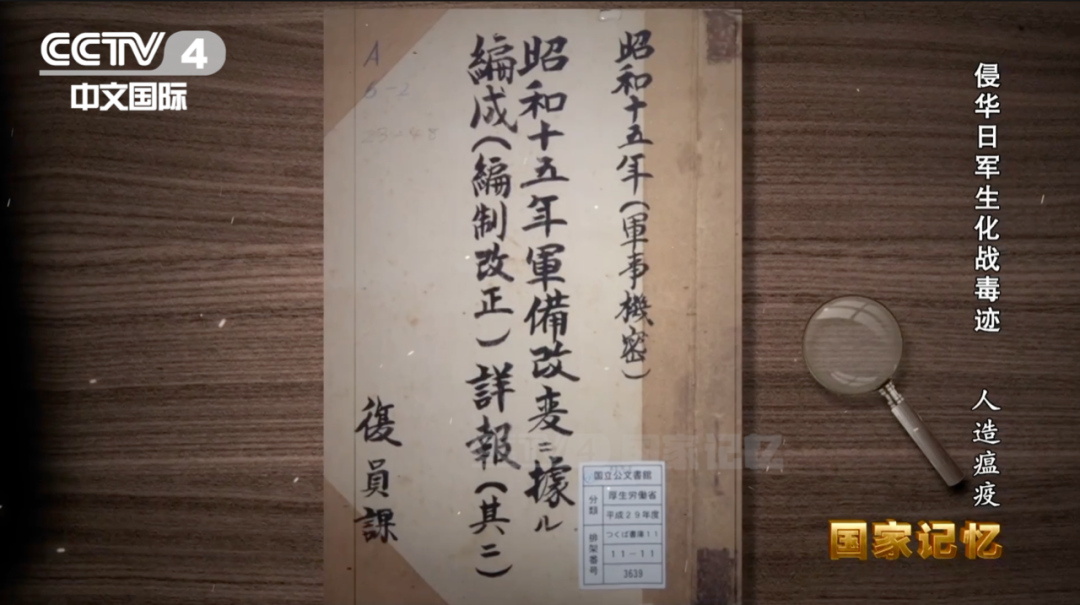 CCTV 4
中文国际
昭和十五年（軍事機密）
昭和十五年軍備改変ニ據ル
編成（編制改正）詳報（其二）
復員課
国立公文書館
分類
厚生労働省
平成29年度
つくば書庫11
排架番号
11-11
3639
侵华日军生化战毒迹
人造瘟疫
国家记忆
国家记忆